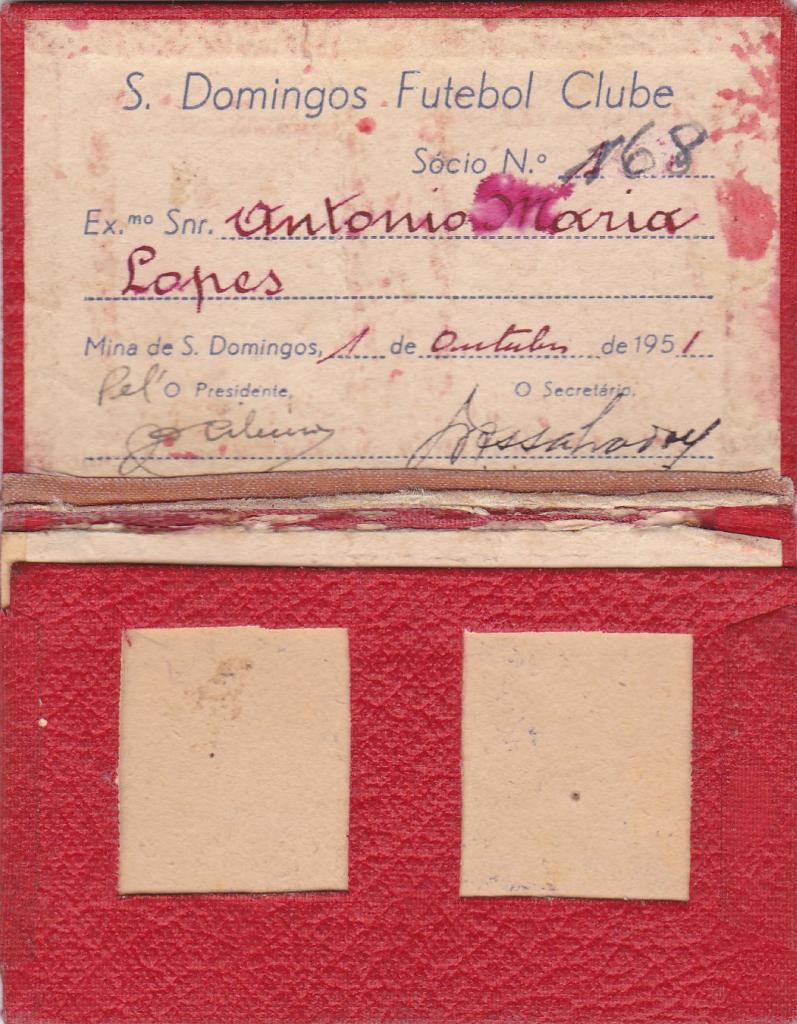 S. Domingos Futebol Clube
Sócio N.º 168
Ex.mo Snr. Antonio Maria
Lopes
Mina de S. Domingos, 1 de Outubro de 1951
Pel' O Presidente, O Secretário,